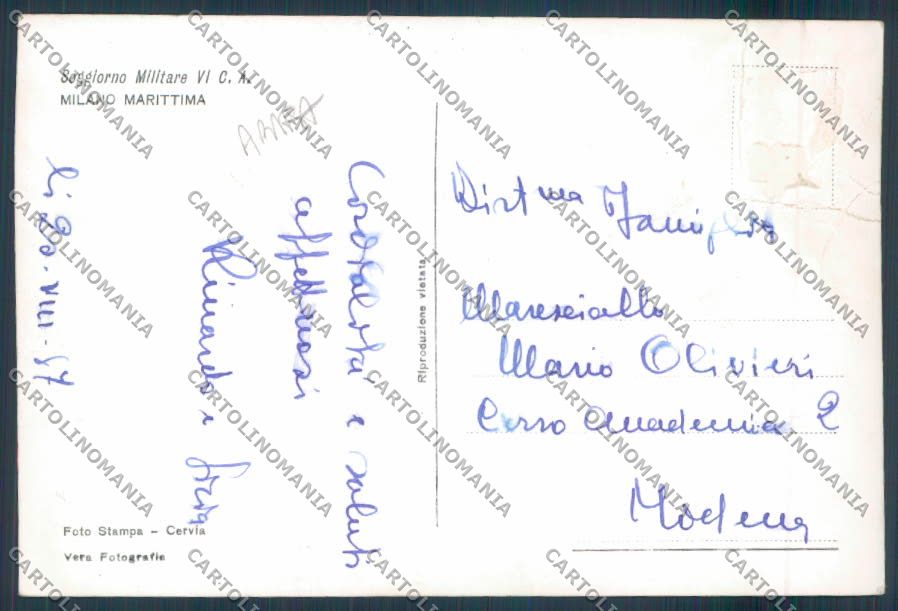 Soggiorno Militare VI C. A.
MILANO MARITTIMA
Cordialità e saluti
affettuosi
Rinaldo e
li 20-VIII-57
Foto Stampa - Cervia
Vera Fotografia
Riproduzione vietata
Dist ma Famiglia
Maresciallo
Mario Olivieri
Corso Accademia 2
Modena
CARTOLINOMANIA